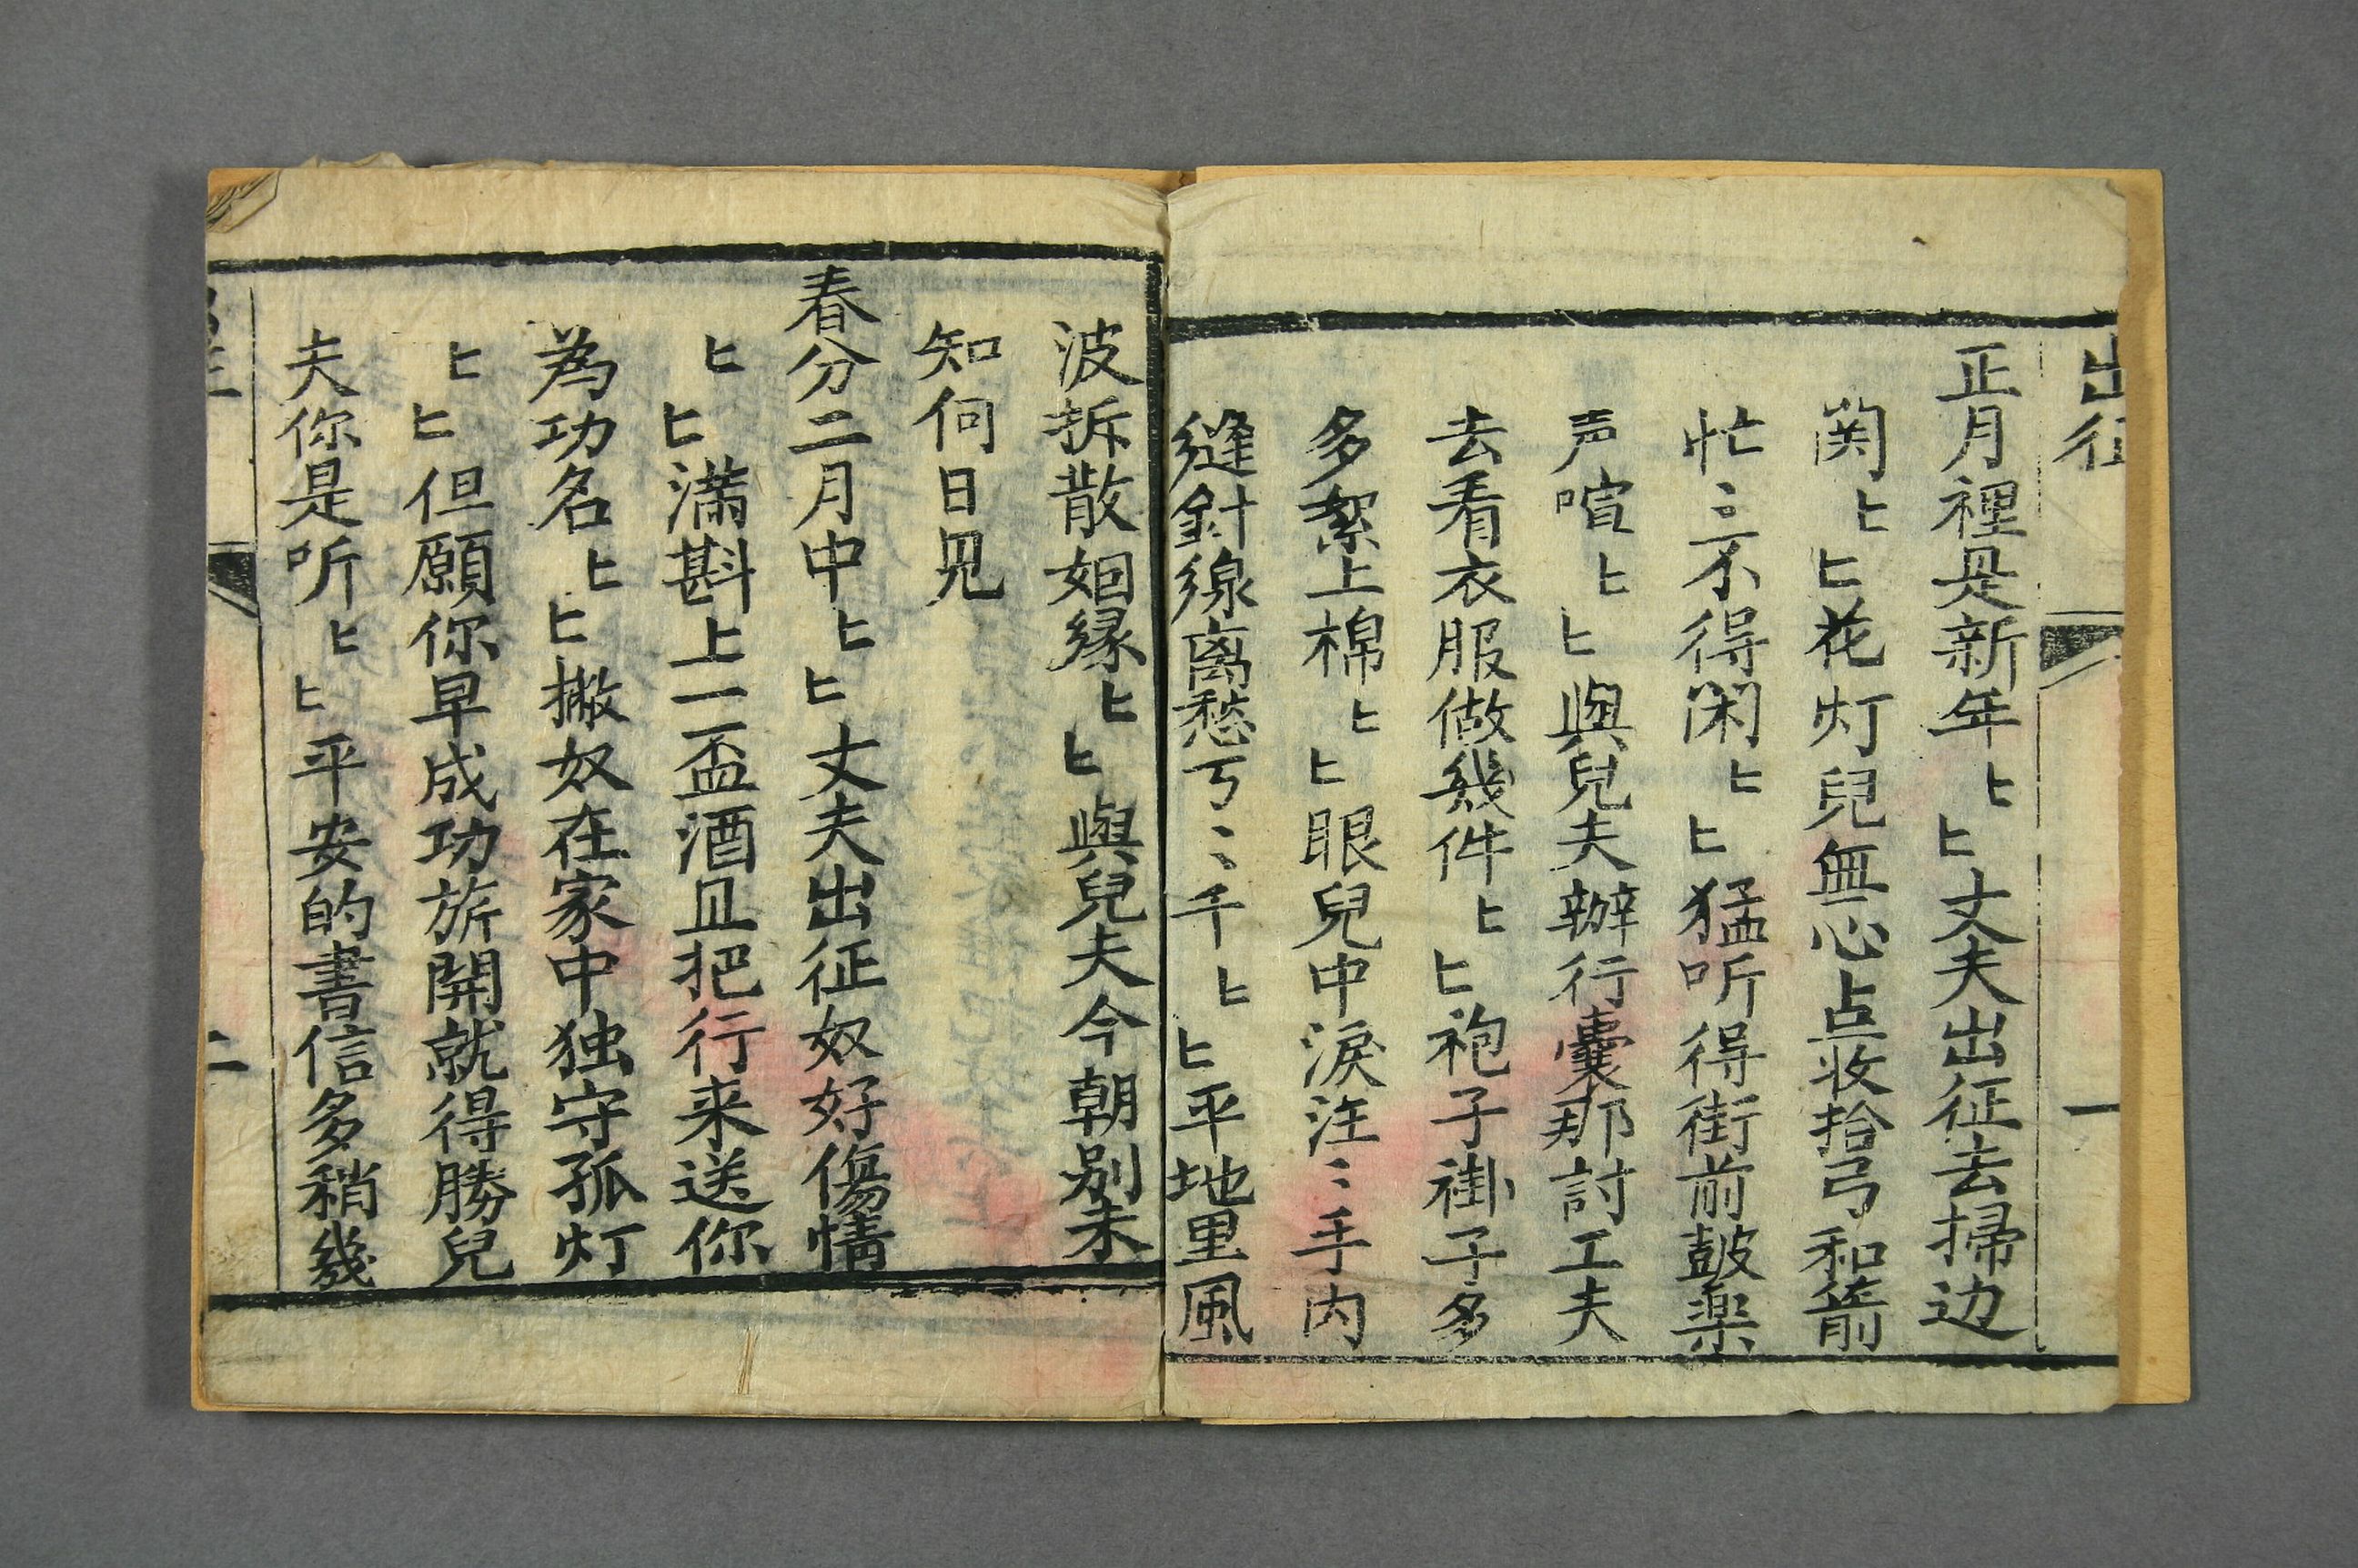 出征
一
正月裡是新年ヒヒ丈夫出征去掃边
関ヒヒ花灯兒無心点妝拾弓和箭
忙〻不得閑ヒヒ猛听得街前鼓樂
声喧ヒヒ與兒夫辦行囊那討工夫
去看衣服做幾件ヒヒ袍子褂子多
多絮上棉ヒヒ眼兒中淚汪〻手内
縫針線离愁万〻千ヒヒ平地里風
波拆散姻緣ヒヒ與兒夫今朝别未
知何日見
春分二月中ヒヒ丈夫出征奴好傷情
ヒヒ满斟上一盃酒且把行来送你
為功名ヒヒ撇奴在家中独守孤灯
ヒヒ但願你早成功旂開就得勝兒
夫你是听ヒヒ平安的書信多稍幾
二